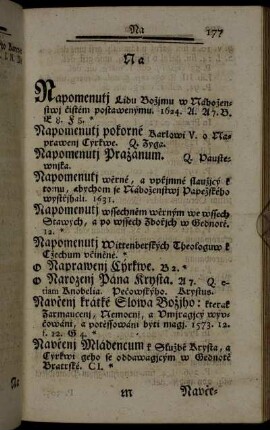 Na
177
Na
Napomenutj Lidu Božjmu w Nábožen-
stwj čistém postawenýmu. 1624. A A 7. B,
E 8. F 5. *
Napomenutj pokorné Karlowi V. o Na-
prawenj Cyrkwe. Q. Zyga.
Napomenutj Pražánum. Q. Pauste-
wnjka.
Napomenutj wěrné, a vpřjmné slaužjcý k
tomu, abychom se Náboženstwj Papežského
wystřjhali. 1631.
Napomenutj wssechněm wěrným we wssech
Stawych, a po wssech Zbořjch w Gednotě.
12. *
Napomenutj Wittenberských Theologuw k
Čzechum včiněné. *
Naprawenj Cýrkwe. B 2. *
Narozenj Pána Krysta. A 7. Q e-
tiam Knobelia. Pečowského. Kryštus.
Naučenj krátké Slowa Božjho: kterak
Zarmaucenj, Nemocnj, a Vmjragjcý wy-
včowáni, a potěssowáni býti magj. 1573. 12.
l. 12. G 4. *
Naučenj Mládencum k Službě Krysta, a
Cýrkwi geho se oddawagjcým w Gednotě
Bratrské. C 1. *
M
Naučé-